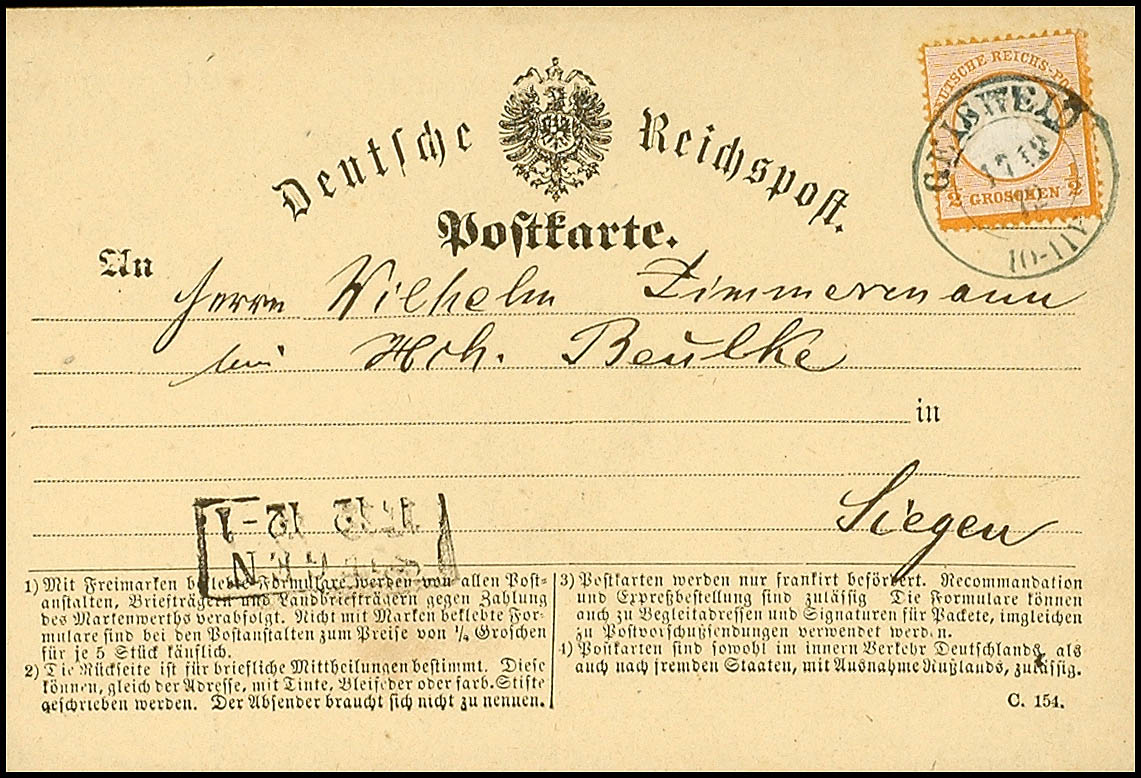 DEUTSCHE REICHS-PO
1/2 GROSCHEN 1/2
GEISWEID
17 12
10-11V
Deutsche Reichspost.
Postkarte.
An
Herrn Wilhelm Zimmermann
bei Hch. Beulke
in
Siegen
12 -1
1) Mit Freimarken beklebte Formulare werden von allen Post-
anstalten, Briefträgern und Landbriefträgern gegen Zahlung
des Markenwerths verabfolgt. Nicht mit Marken beklebte For-
mulare sind bei den Postanstalten zum Preise von ¼ Groschen
für je 5 Stück käuflich.
2) Die Rückseite ist für briefliche Mittheilungen bestimmt. Diese
können, gleich der Adresse, mit Tinte, Bleifeder oder farb. Stifte
geschrieben werden. Der Absender braucht sich nicht zu nennen.
3) Postkarten werden nur frankirt befördert. Recommandation
und Expreßbestellung sind zulässig Die Formulare können
auch zu Begleitadressen und Signaturen für Packete, imgleichen
zu Postvorschußsendungen verwendet werden.
4) Postkarten sind sowohl im innern Verkehr Deutschlands, als
auch nach fremden Staaten, mit Ausnahme Rußlands, zulässig.
C. 154.